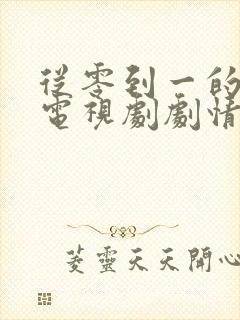 從零到一的
電視劇劇情
菱靈天天開心